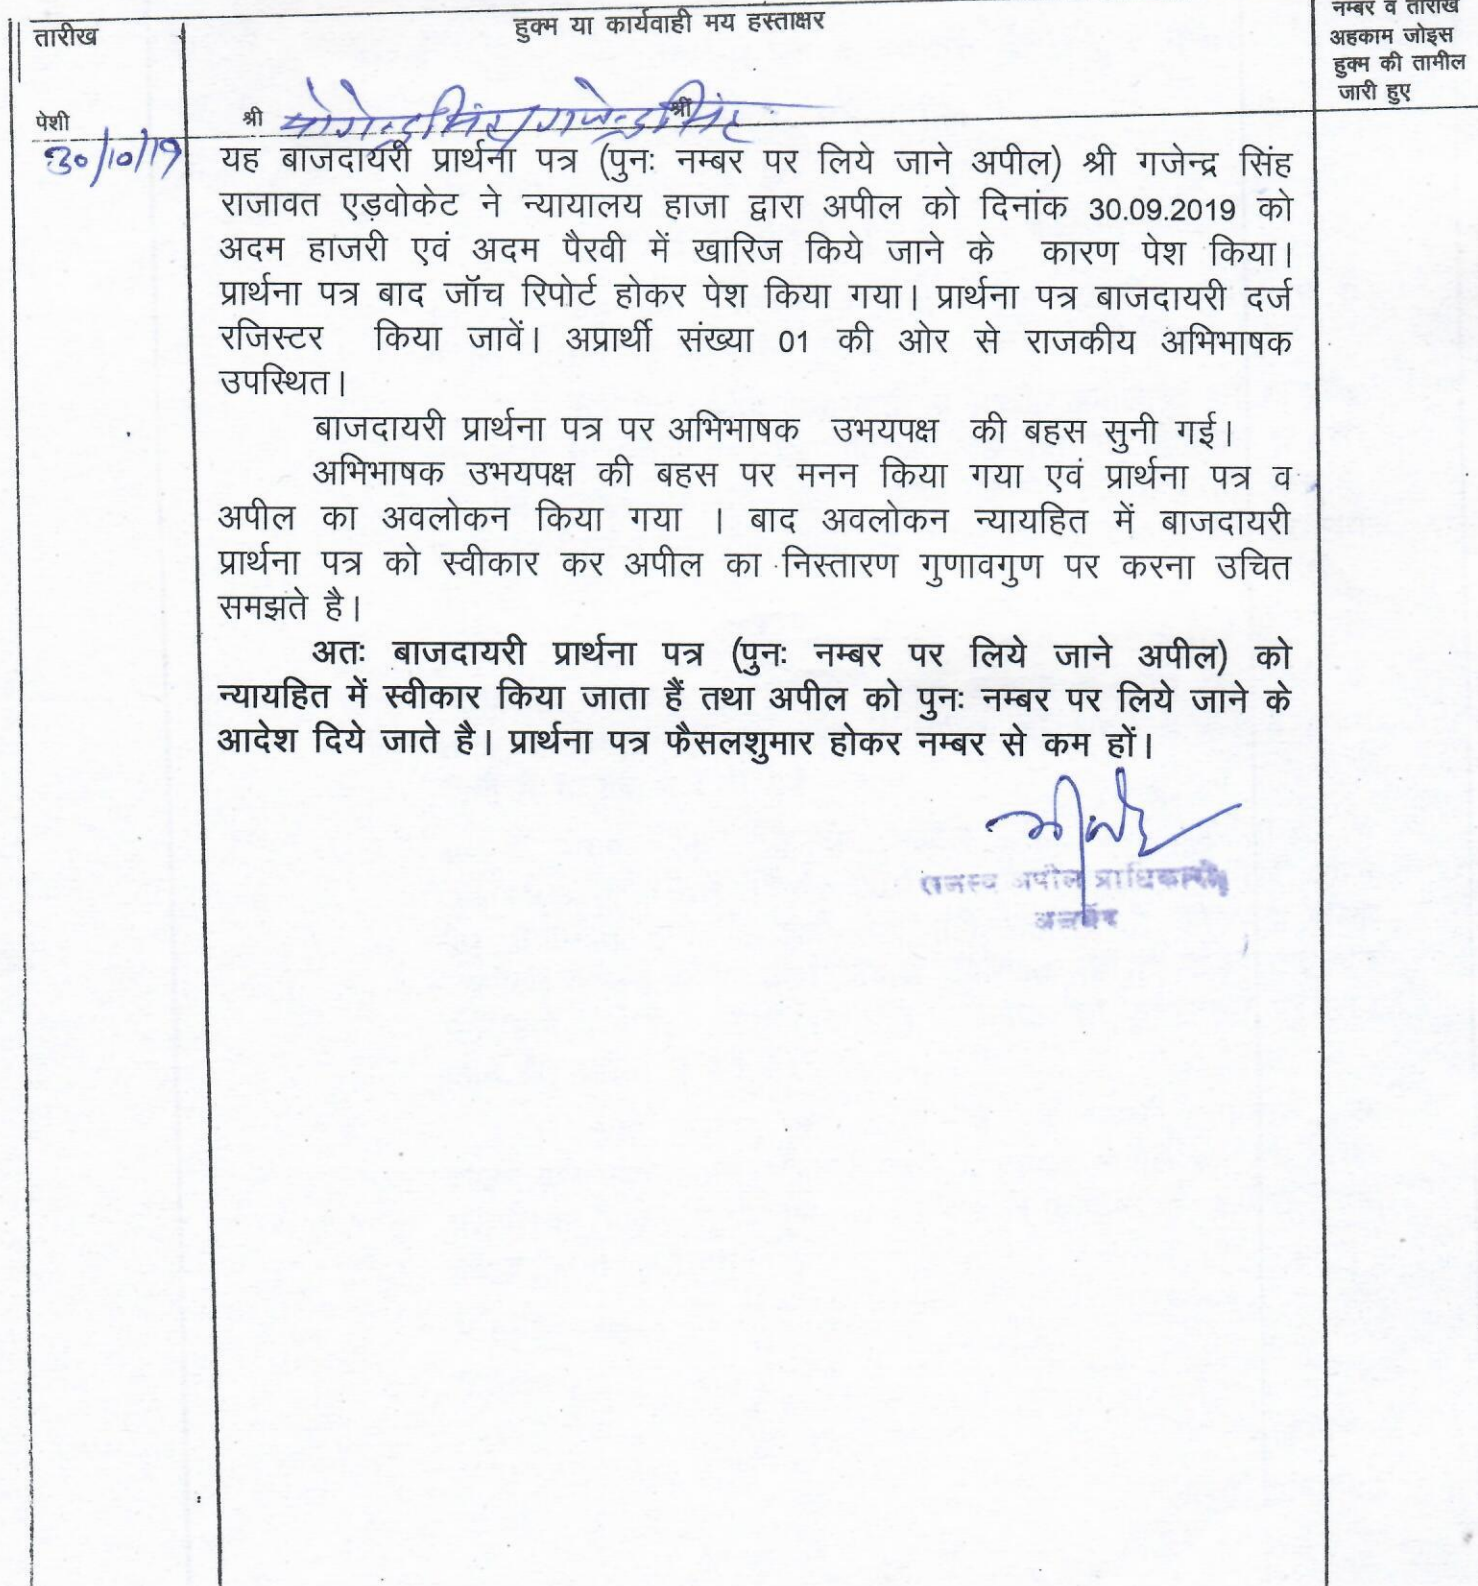 तारीख
हुक्म या कार्यवाही मय हस्ताक्षर
नम्बर व तारीख
अहकाम जोइस
हुक्म की तामील
जारी हुए
पेशी
श्री गजेन्द्रसिंह श्री
30/10/19
यह बाजदायरी प्रार्थना पत्र (पुनः नम्बर पर लिये जाने अपील) श्री गजेन्द्र सिंह
राजावत एड़वोकेट ने न्यायालय हाजा द्वारा अपील को दिनांक 30.09.2019 को
अदम हाजरी एवं अदम पैरवी में खारिज किये जाने के कारण पेश किया।
प्रार्थना पत्र बाद जॉच रिपोर्ट होकर पेश किया गया। प्रार्थना पत्र बाजदायरी दर्ज
रजिस्टर किया जावें। अप्रार्थी संख्या 01 की ओर से राजकीय अभिभाषक
उपस्थित।
बाजदायरी प्रार्थना पत्र पर अभिभाषक उभयपक्ष की बहस सुनी गई।
अभिभाषक उभयपक्ष की बहस पर मनन किया गया एवं प्रार्थना पत्र व
अपील का अवलोकन किया गया । बाद अवलोकन न्यायहित में बाजदायरी
प्रार्थना पत्र को स्वीकार कर अपील का निस्तारण गुणावगुण पर करना उचित
समझते है।
अतः बाजदायरी प्रार्थना पत्र (पुनः नम्बर पर लिये जाने अपील) को
न्यायहित में स्वीकार किया जाता हैं तथा अपील को पुनः नम्बर पर लिये जाने के
आदेश दिये जाते है। प्रार्थना पत्र फैसलशुमार होकर नम्बर से कम हों।
राजस्व अपील प्राधिकारी